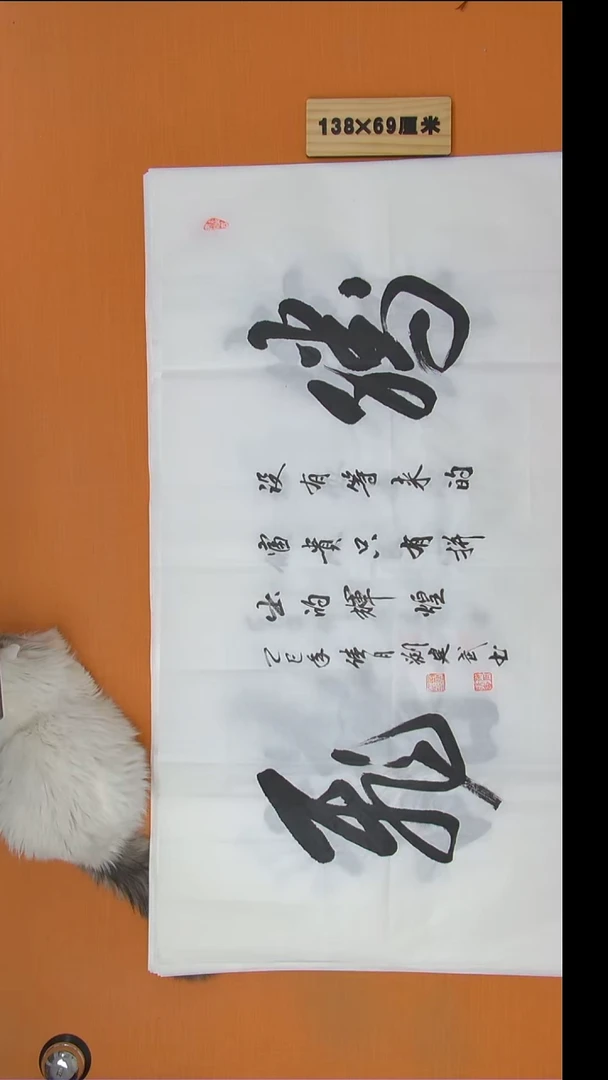 138×69厘米
没有等来的
富貴只有拼
出的輝煌
乙巳年月建武书